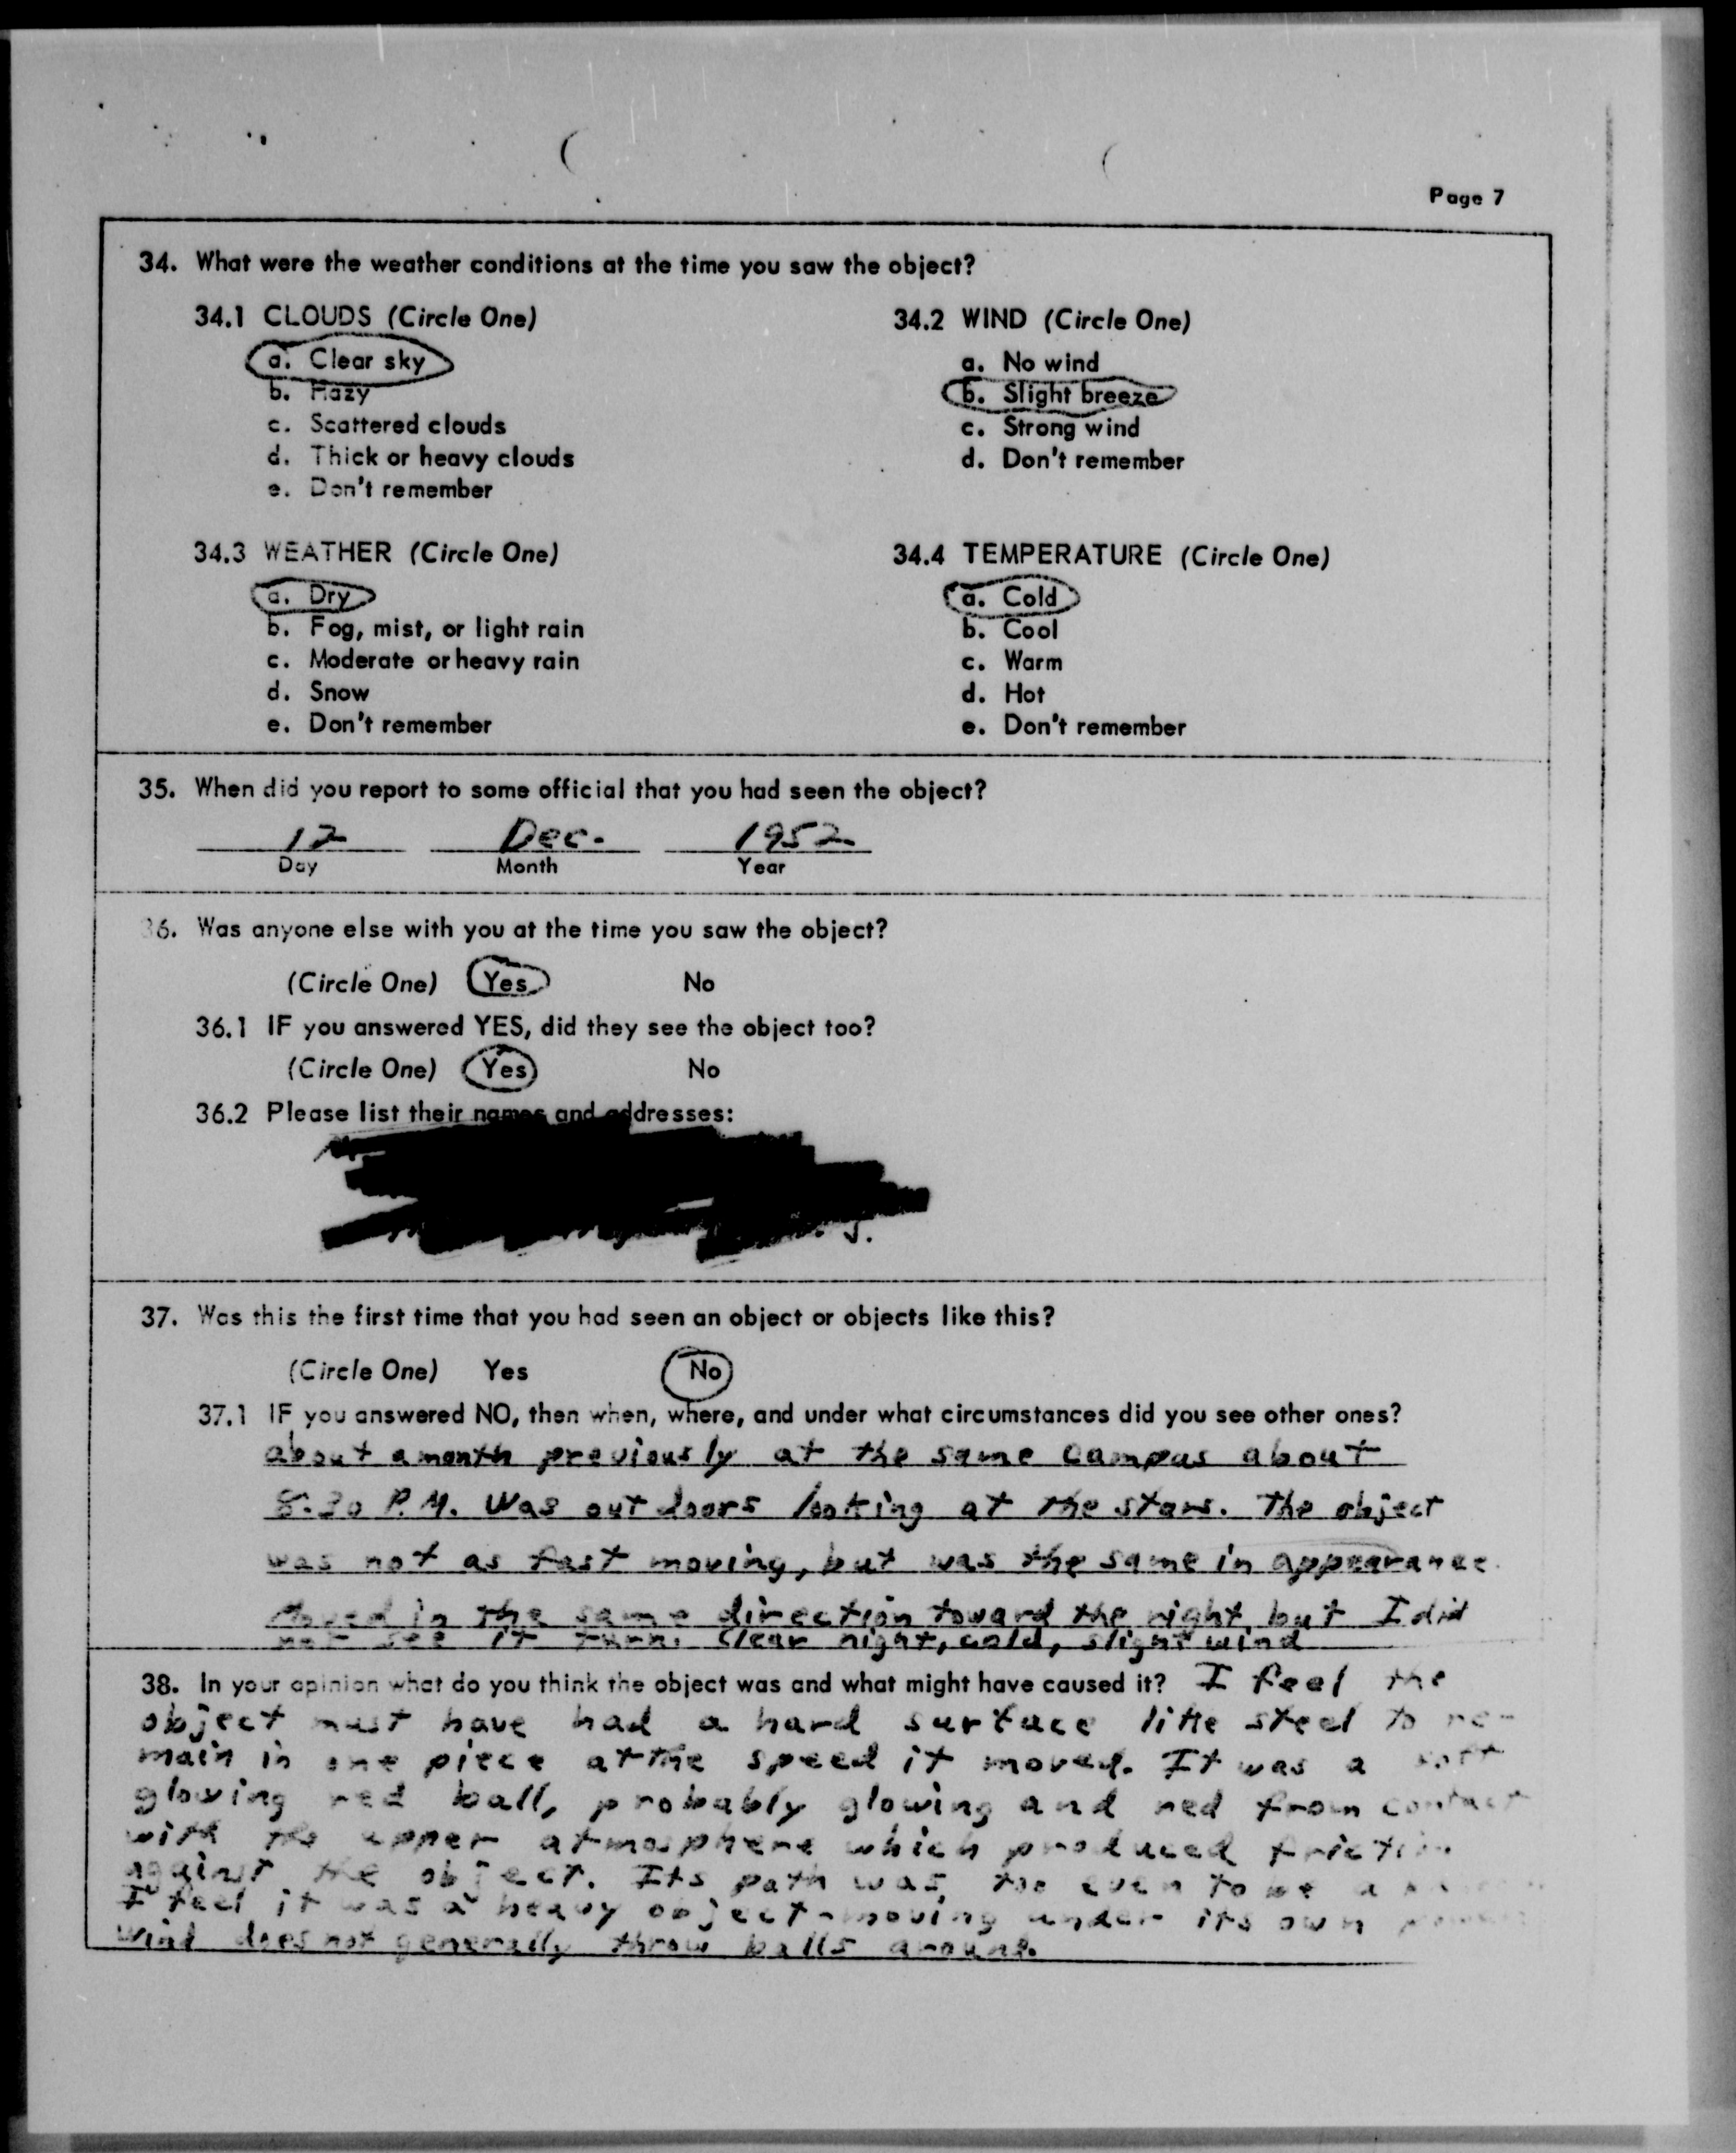 Page 7
34. What were the weather conditions at the time you saw the object?
34.1 CLOUDS (Circle One)
a. Clear sky
b. Hazy
c. Scattered clouds
d. Thick or heavy clouds
e. Don't remember
34.2 WIND (Circle One)
a. No wind
b. Slight breeze
c. Strong wind
d. Don't remember
34.3 WEATHER (Circle One)
a. Dry
b. Fog, mist, or light rain
c. Moderate or heavy rain
d. Snow
e. Don't remember
34.4 TEMPERATURE (Circle One)
a. Cold
b. Cool
c. Warm
d. Hot
e. Don't remember
35. When did you report to some official that you had seen the object?
12 Dec. 1952
Day Month Year
36. Was anyone else with you at the time you saw the object?
(Circle One) Yes No
36.1 IF you answered YES, did they see the object too?
(Circle One) Yes No
36.2 Please list their names and addresses:
J.
37. Was this the first time that you had seen an object or objects like this?
(Circle One) Yes No
37.1 IF you answered NO, then when, where, and under what circumstances did you see other ones?
about a month previously at the same campus about
8:30 P.M. Was out doors looking at the stars. The object
was not as fast moving, but was the same in appearance.
Moved in the same direction toward the right but I did
not see it turn. Clear night, cold, slight wind
38. In your opinion what do you think the object was and what might have caused it? I feel the
object must have had a hard surface like steel to re-
main in one piece at the speed it moved. It was a soft
glowing red ball, probably glowing and red from contact
with the upper atmosphere which produced friction
against the object. Its path was too even to be a
I feel it was a heavy object - moving under its own power
wind does not generally throw balls around.